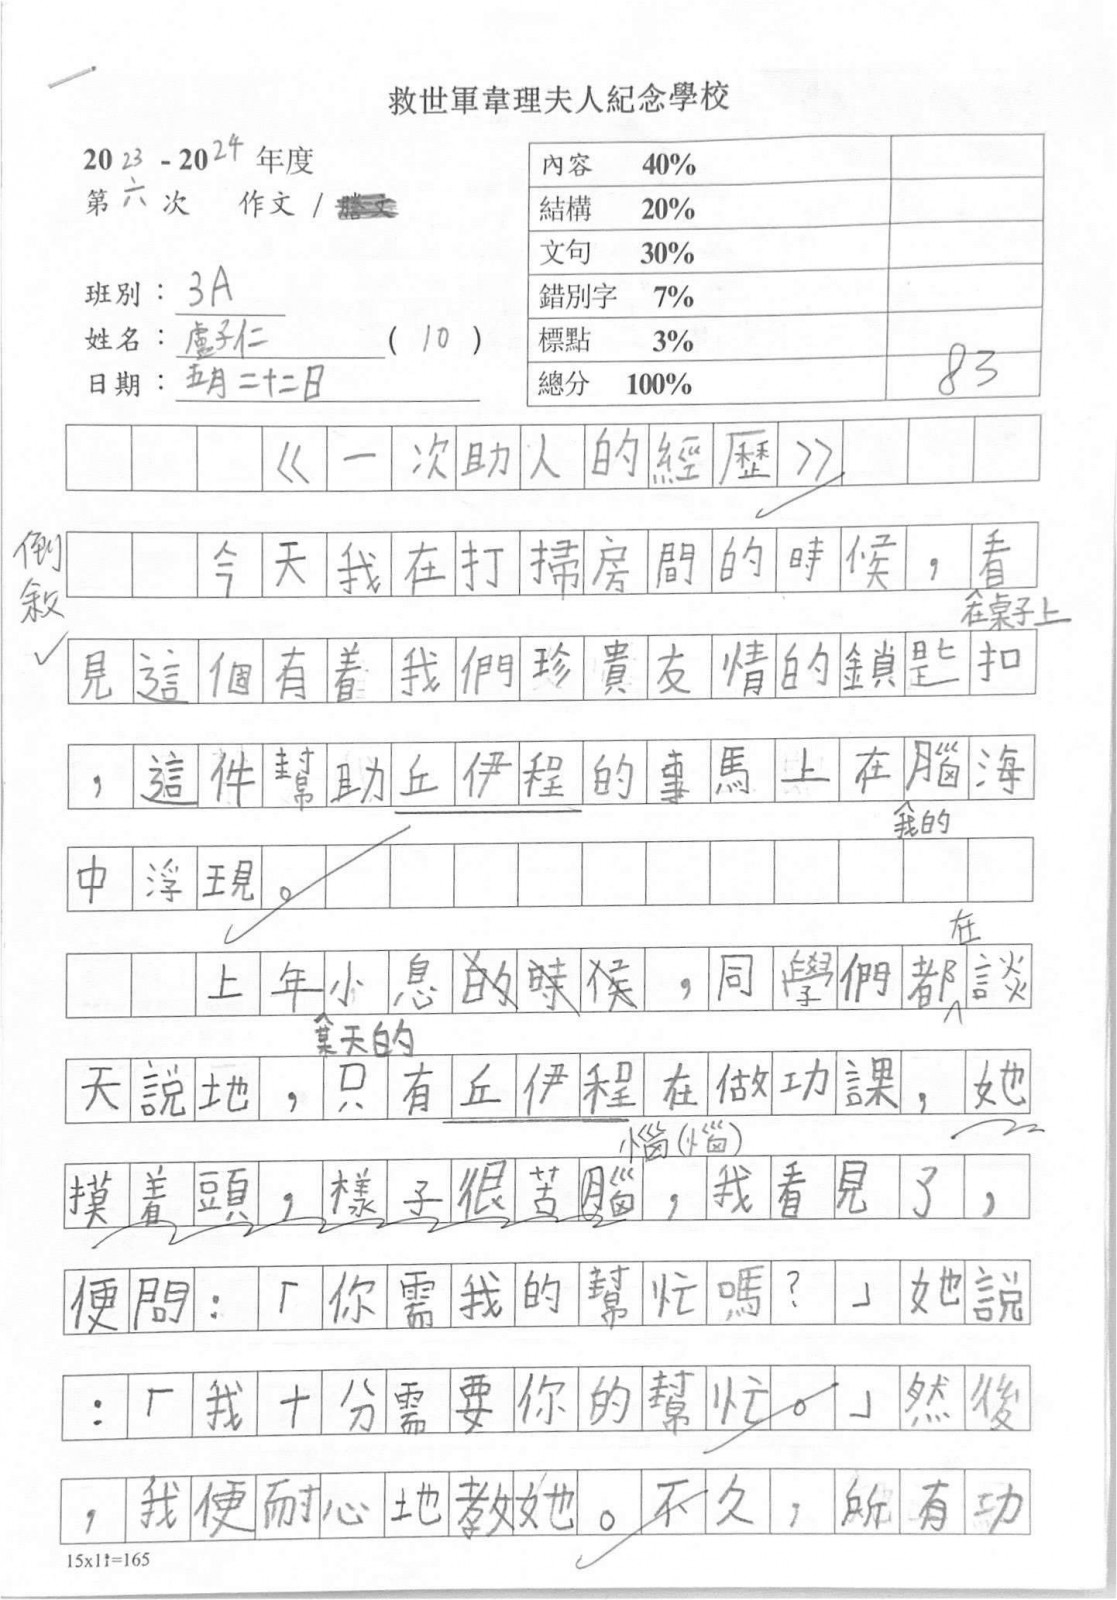 救世軍韋理夫人紀念學校
2023 - 2024 年度
第六次 作文 / 謄文
班別：3A
姓名：盧子仁 (10)
日期：五月二十二日
內容 40%
結構 20%
文句 30%
錯別字 7%
標點 3%
總分 100% 83
《一次助人的經歷》
倒敘
今天我在打掃房間的時候，看
在桌子上
見這個有着我們珍貴友情的鎖匙扣
，這件幫助丘伊程的事馬上在腦海
我的
中浮現。
在
上年小息的時候，同學們都談
某天的
天說地，只有丘伊程在做功課，她
惱(惱)
摸着頭，樣子很苦腦，我看見了，
便問：「你需我的幫忙嗎？」她說
：「我十分需要你的幫忙。」然後
，我便耐心地教她。不久，所有功
15x11=165